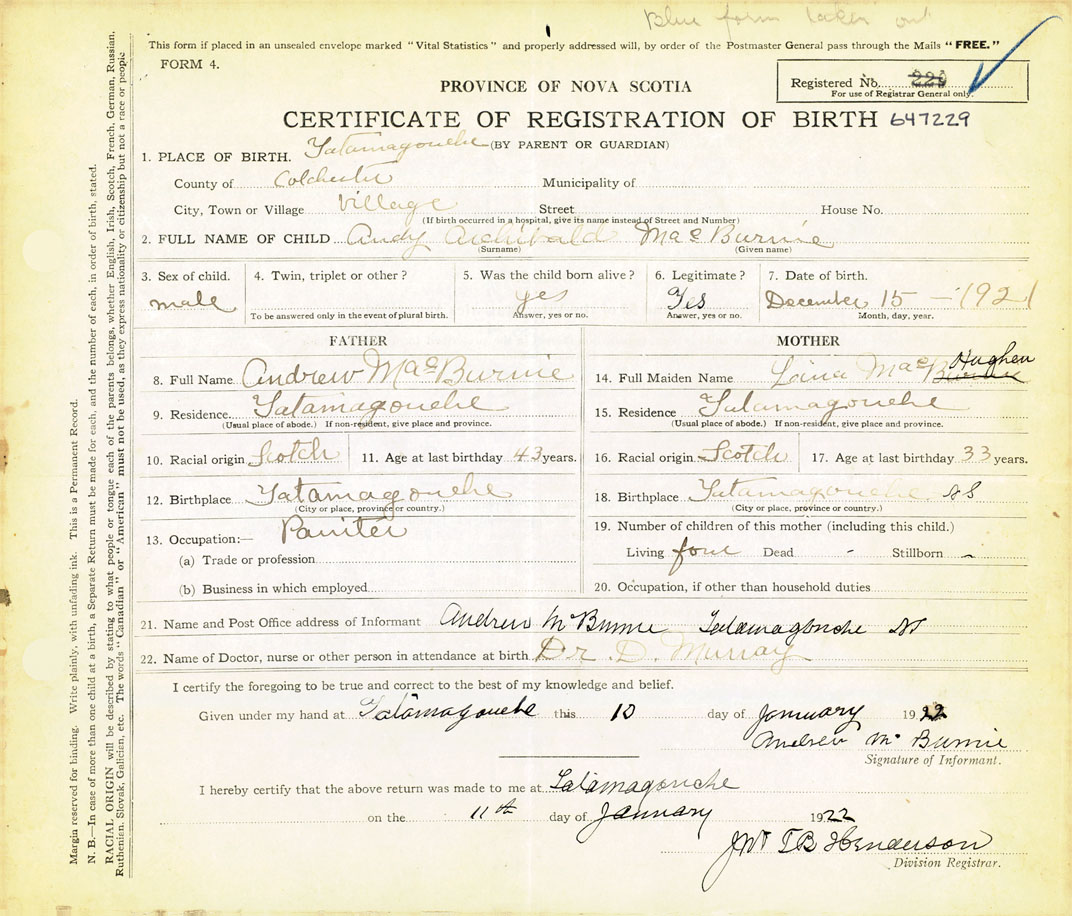 Blue form taken out
This form if placed in an unsealed envelope marked "Vital Statistics" and properly addressed will, by order of the Postmaster General pass through the Mails "FREE."
FORM 4.
Registered No. 229
For use of Registrar General only.
PROVINCE OF NOVA SCOTIA
CERTIFICATE OF REGISTRATION OF BIRTH 647229
(BY PARENT OR GUARDIAN)
1. PLACE OF BIRTH. Tatamagouche
County of Colchester Municipality of
City, Town or Village Village Street House No.
(If birth occurred in a hospital, give its name instead of Street and Number)
2. FULL NAME OF CHILD Andy Archibald MacBurnie
(Surname) (Given name)
3. Sex of child. 4. Twin, triplet or other? 5. Was the child born alive? 6. Legitimate? 7. Date of birth.
male yes Yes December 15 - 1921
To be answered only in the event of plural birth. Answer, yes or no. Answer, yes or no. Month, day, year.
FATHER
8. Full Name Andrew MacBurnie
9. Residence Tatamagouche
(Usual place of abode.) If non-resident, give place and province.
10. Racial origin Scotch 11. Age at last birthday 43 years.
12. Birthplace Tatamagouche
(City or place, province or country.)
13. Occupation:— Paniter
(a) Trade or profession
(b) Business in which employed
MOTHER
Hughen
14. Full Maiden Name Lana MacBurnie
15. Residence Tatamagouche
(Usual place of abode.) If non-resident, give place and province.
16. Racial origin Scotch 17. Age at last birthday 33 years.
18. Birthplace Tatamagouche NS
(City or place, province or country.)
19. Number of children of this mother (including this child.)
Living four Dead - Stillborn -
20. Occupation, if other than household duties
21. Name and Post Office address of Informant Andrew McBurnie Tatamagouche NS
22. Name of Doctor, nurse or other person in attendance at birth Dr. D. Murray
I certify the foregoing to be true and correct to the best of my knowledge and belief.
Given under my hand at Tatamagouche this 10 day of January 1922
Andrew McBurnie
Signature of Informant.
I hereby certify that the above return was made to me at Tatamagouche
on the 11th day of January 1922
TB Henderson
Division Registrar.
Margin reserved for binding. Write plainly, with unfading ink. This is a Permanent Record.
N. B.—In case of more than one child at a birth, a Separate Return must be made for each, and the number of each, in order of birth, stated.
RACIAL ORIGIN will be described by stating to what people or tongue each of the parents belongs, whether English, Irish, Scotch, French, German, Russian,
Ruthenian, Slovak, Galician, etc. The words "Canadian" or "American" must not be used, as they express nationality or citizenship but not a race or people.